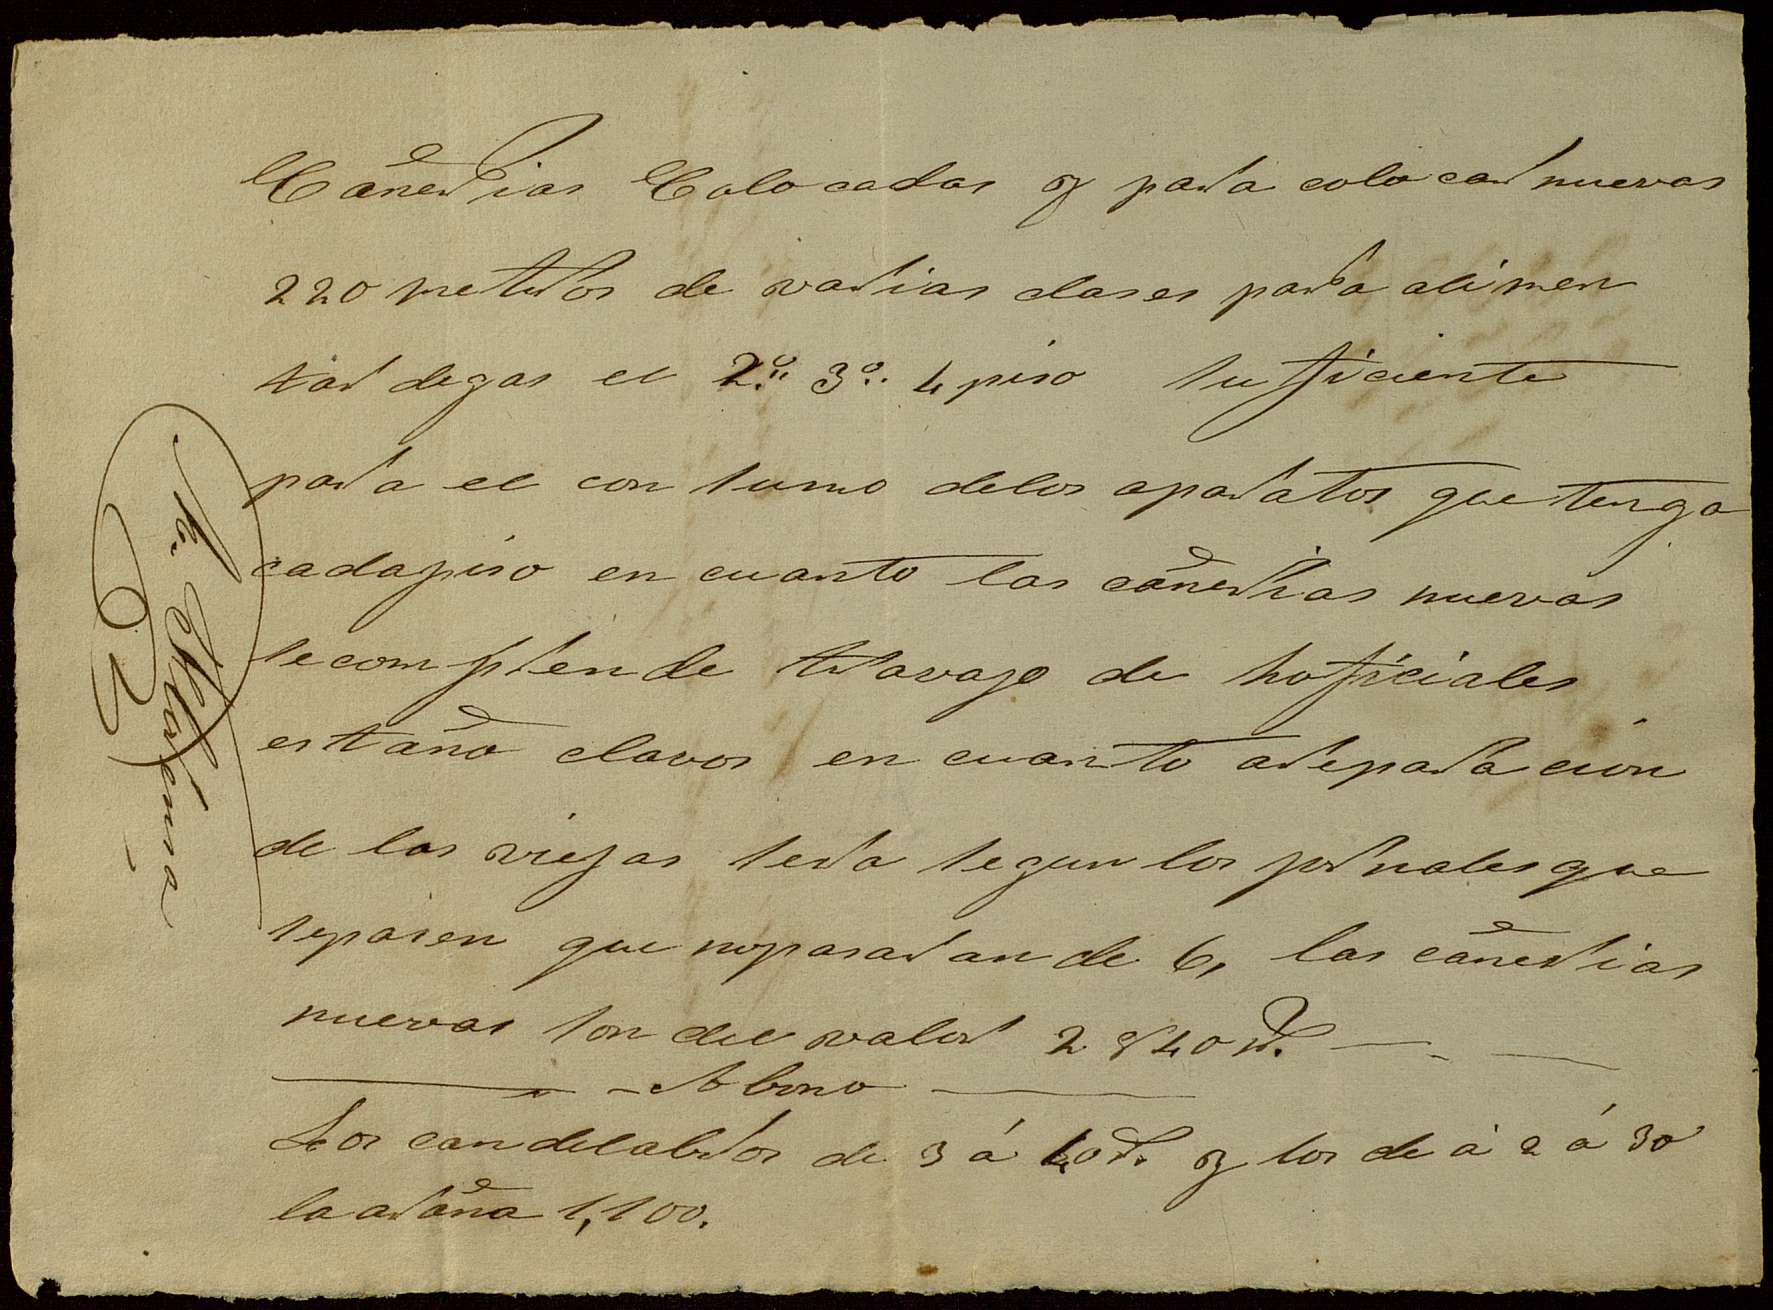 Cañerias Colocadas y para colocar nuevas
220 metros de varias clases para alimen
tar de gas el 2º 3º 4 piso suficiente
para el consumo delos aparatos que tenga
cadapiso en cuanto las cañerias nuevas
secomprende travajo de hoficiales
estaño clavos en cuanto areparacion
de las viejas sera segun los jornales que
sepasen que nopasaran de 6, las cañerias
nuevas son del valor 2840 r.
Abono
Los candelabros de 3 á 40 r. y los de á 2 á 30
la araña 1,100.